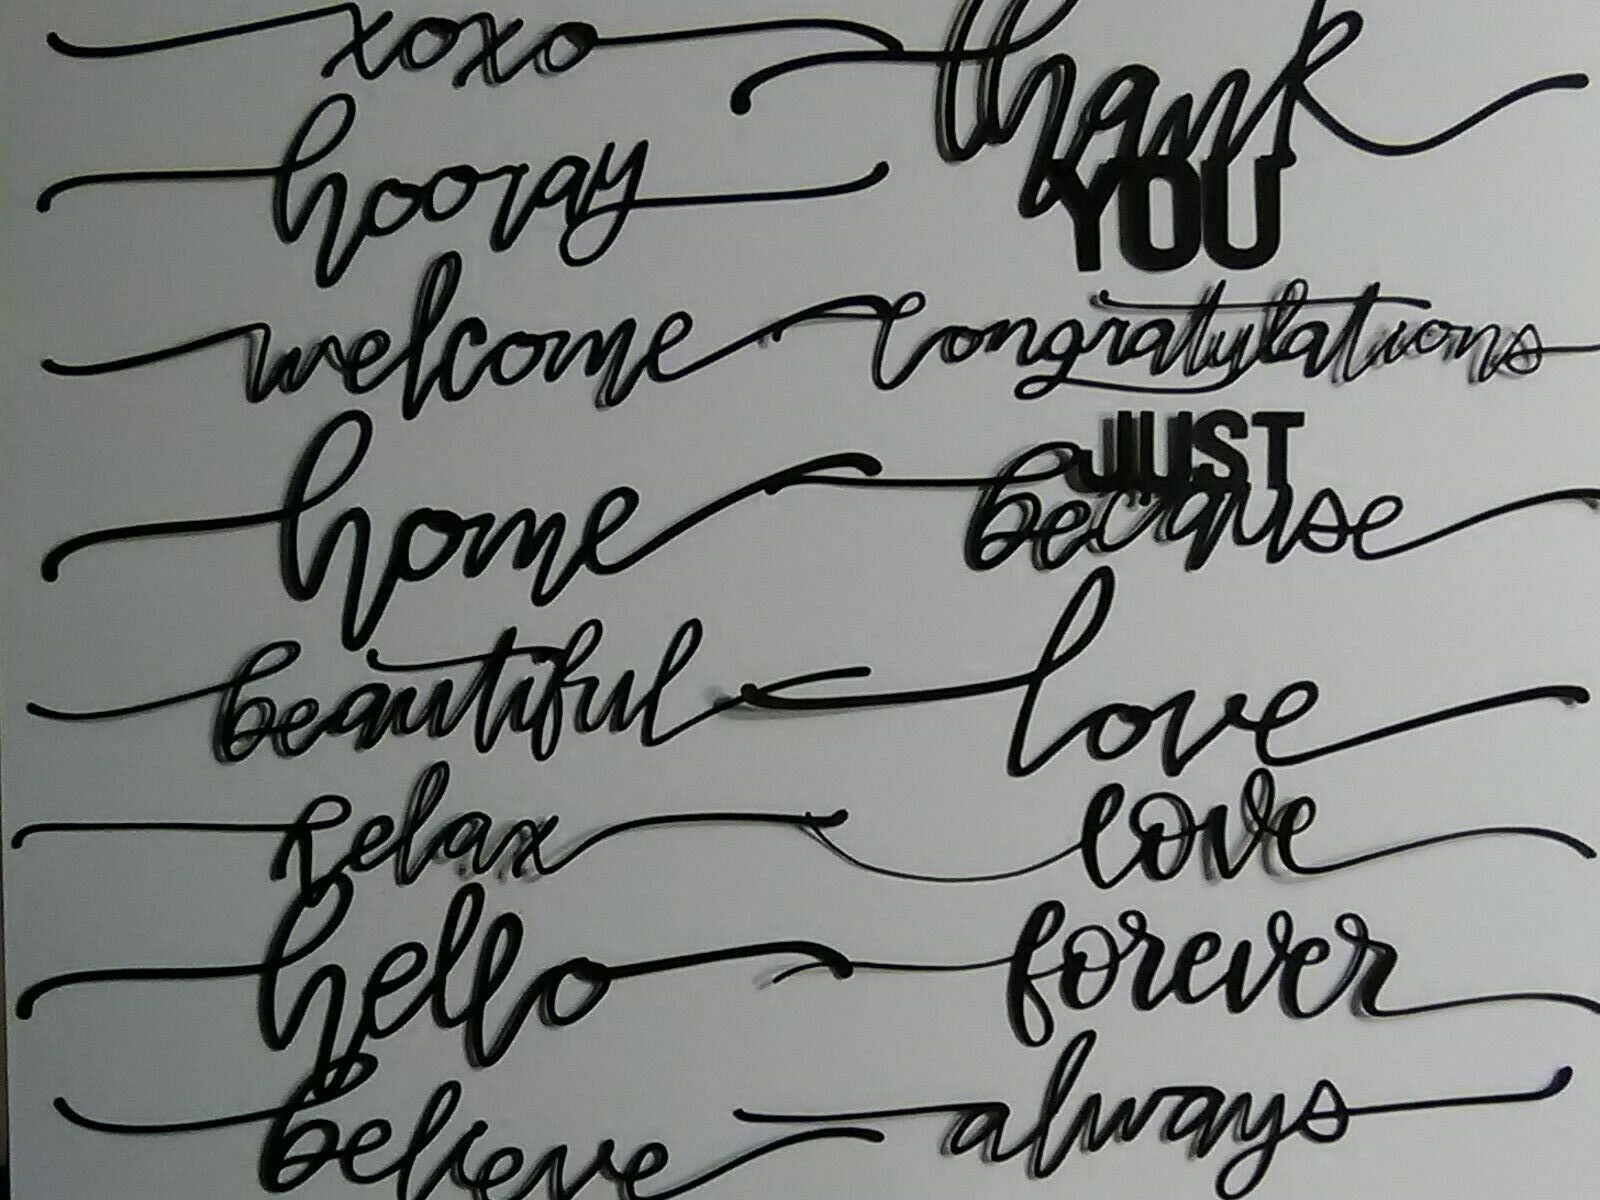 xoxo
hooray
welcome
home
beautiful
relax
hello
believe
thank
YOU
congratulations
JUST
because
love
love
forever
always